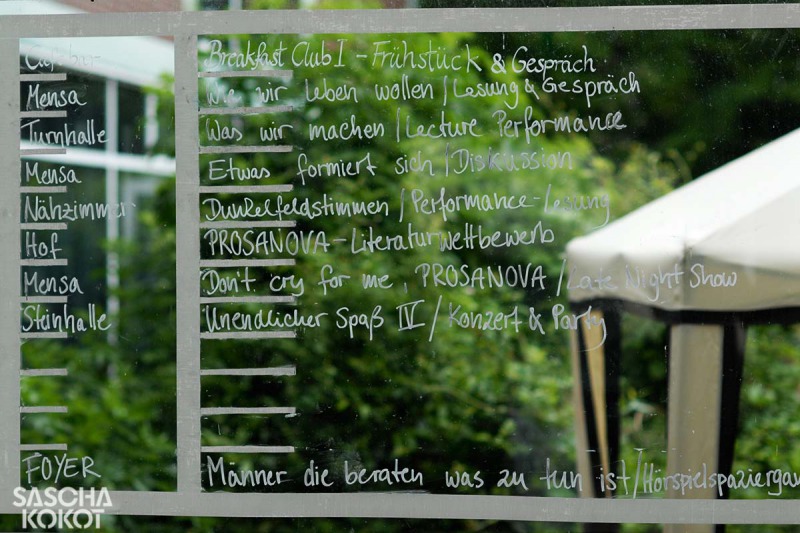 Cafébar Breakfast Club I - Frühstück & Gespräch
Mensa Wie wir leben wollen / Lesung & Gespräch
Turnhalle Was wir machen / Lecture Performance
Mensa Etwas formiert sich / Diskussion
Nähzimmer Dunkelfeldstimmen / Performance-Lesung
Hof PROSANOVA-Literaturwettbewerb
Mensa Don't cry for me, PROSANOVA / Late Night Show
Steinhalle Unendlicher Spaß IV / Konzert & Party
FOYER Männer die beraten was zu tun ist / Hörspielspaziergan
SASCHA
KOKOT